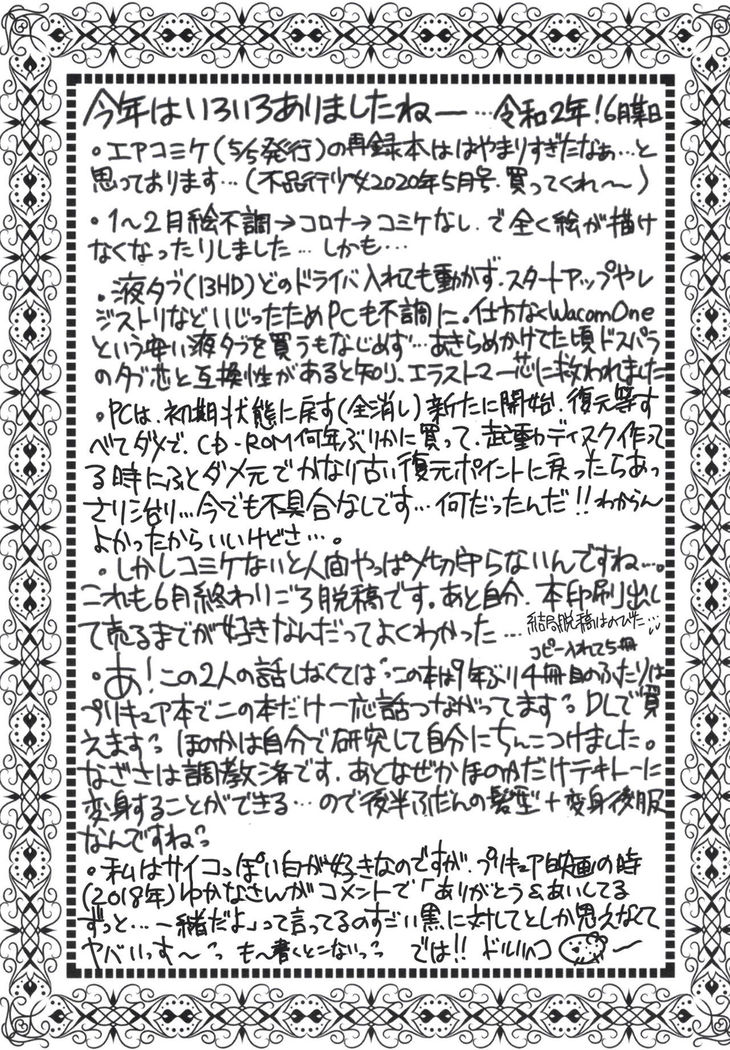 今年はいろいろありましたねー…令和2年！6月某日
・エアコミケ(5/5発行)の再録本ははやまりすぎたなぁ…と
思っております…(不品行少女2020年5月号.買ってくれ〜)
・1〜2月絵不調→コロナ→コミケなし.で全く絵が描け
なくなったりしました…しかも…
・液タブ(13HD)どのドライバ入れても動かず.スタートアップやレ
ジストリなどいじったためPCも不調に.仕方なくWacomOne
という安い液タブを買うもなじめず…あきらめかけてた頃ドスパラ
のタブ芯と互換性があると知り、エラストマー芯に救われました
・PCは、初期状態に戻す(全消し)新たに開始.復元等す
べてダメで、CD-ROM何年ぶりかに買って、起動ディスク作って
る時にふとダメ元でかなり古い復元ポイントに戻ったらあっ
さり治り…今でも不具合なしです…何だったんだ!!わからん
よかったからいいけどさ…。
・しかしコミケないと人間やっぱ〆切守らないんですね…。
これも6月終わりごろ脱稿です。あと自分.本印刷し出し
て売るまでが好きなんだってよくわかった…結局脱稿はのびた…
コピー入れて5冊
・あ！この2人の話しなくては〃この本は9年ぶり4冊目のふたりは
プリキュア本でこの本だけ一応話つながってます〃DLで買
えます〃ほのかは自分で研究して自分にちんこつけました。
なぎさは調教済です.あとなぜかほのかだけテキトーに
変身することができる…ので後半ふだんの髪型+変身後服
なんですね〃
・私はサイコっぽい白が好きなのですが.プリキュア映画の時
(2018年)ゆかなさんがコメントで「ありがとう&あいしてる
ずっと…一緒だよ」って言ってるのすごい黒に対してとしか思えなくて
ヤバいっす〜〃も〜書くとこないっ〃では!!ドルリハコ